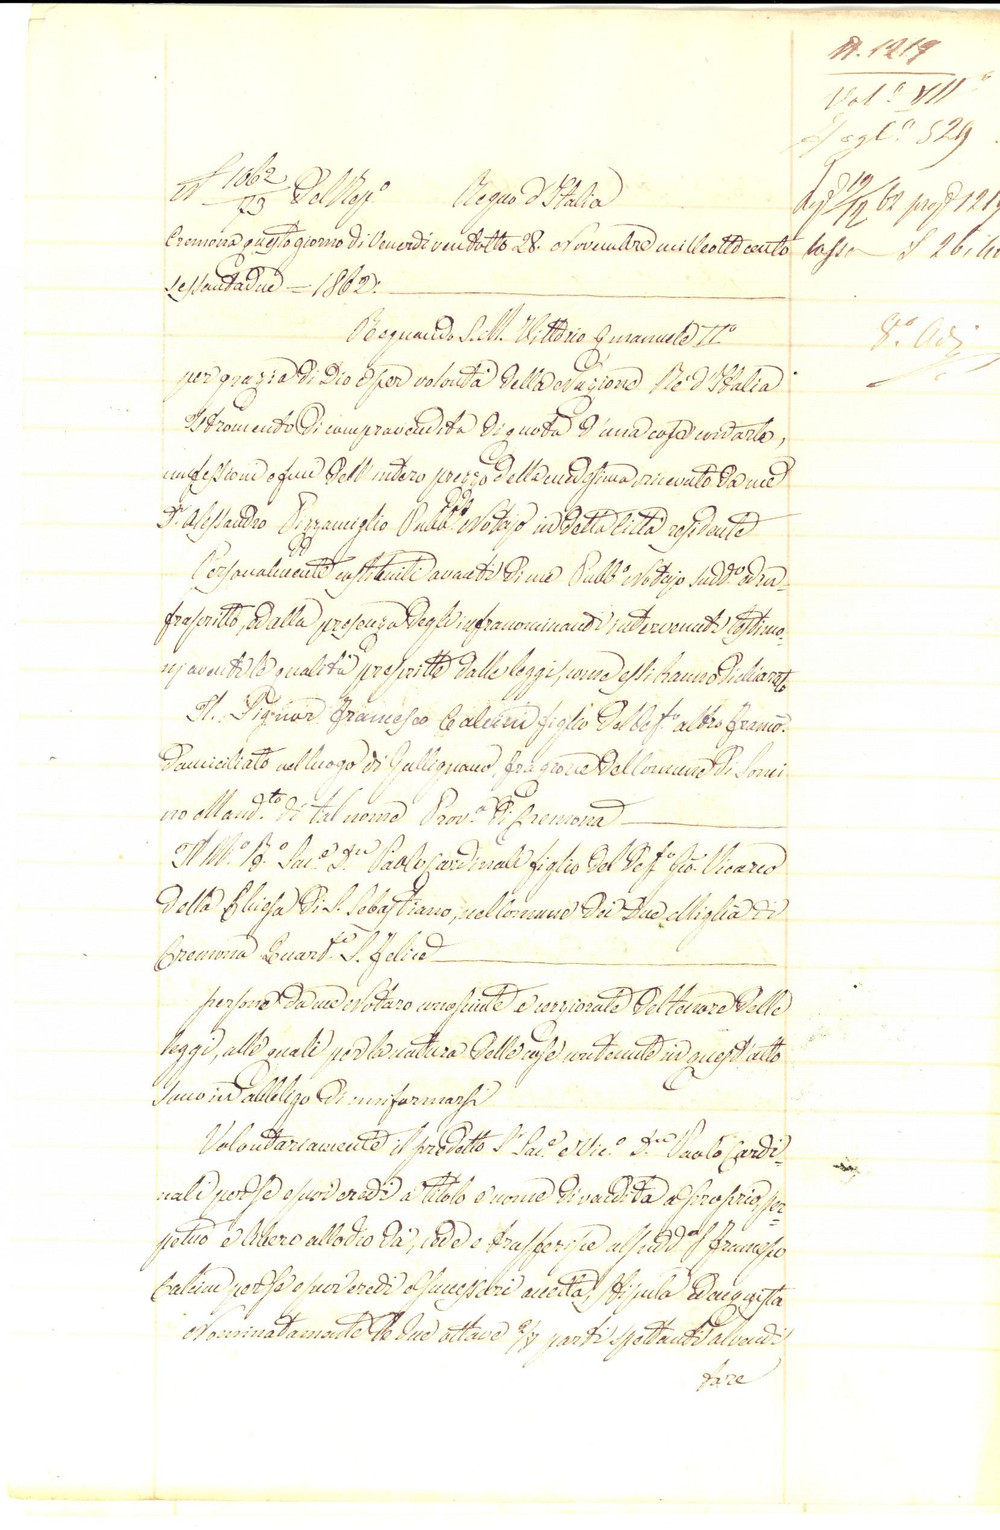 N. 1219
Vol.° VII°
Fogl.° 529
N° 1862/
Del Rep.° Regno d'Italia
Cremona questo giorno di Venerdì ventotto 28. Novembre milleottocento
sessantadue = 1862.
Regnando S. M. Vittorio Emanuele II.°
per grazia di Dio e per volontà della Nazione Re d'Italia
Istromento di compravendita di quota d'una casa con orto,
confessione e fine dell'intero prezzo della medesima, ricevuto da me
D.r Alessandro Pizzamiglio Pubb.° Notajo in detta Città residente
Personalmente costituiti avanti di me Pubb.° Notajo sudd.° ed in-
frascritto, ed alla presenza degli infranominandi intervenuti testimo-
nj aventi le qualità prescritte dalle leggi, come essi hanno dichiarato
Il Signor Francesco figlio del def.° altro Franc.°
domiciliato nel luogo di Gallignano, frazione del Comune di Sonci
no Mand.to di tal nome Prov.a di Cremona
Il M.° R.° Sac.e D.n Paolo Cardinali figlio del def.° Gio. Vicario
della Chiesa di S. Sebastiano, nel Comune dei Due Miglia di
Cremona Quart.re S. Felice
persone da me Notaro conosciute e cerziorate del tenore delle
leggi, alle quali per la natura delle cose contenute in quest'atto
sono in obbligo di uniformarsi
Volontariamente il predetto S.r Sac.e e Vic.° D.n Paolo Cardi-
nali per sé e suoi eredi a titolo e nome di vendita a proprio, per-
petuo e libero allodio dà, cede e trasferisce al sudd.° S.r Francesco
per sé e suoi eredi e successori accetta, stipula ed acquista
Nominatamente le due ottave 2/8 parti spettanti al vendi
tore